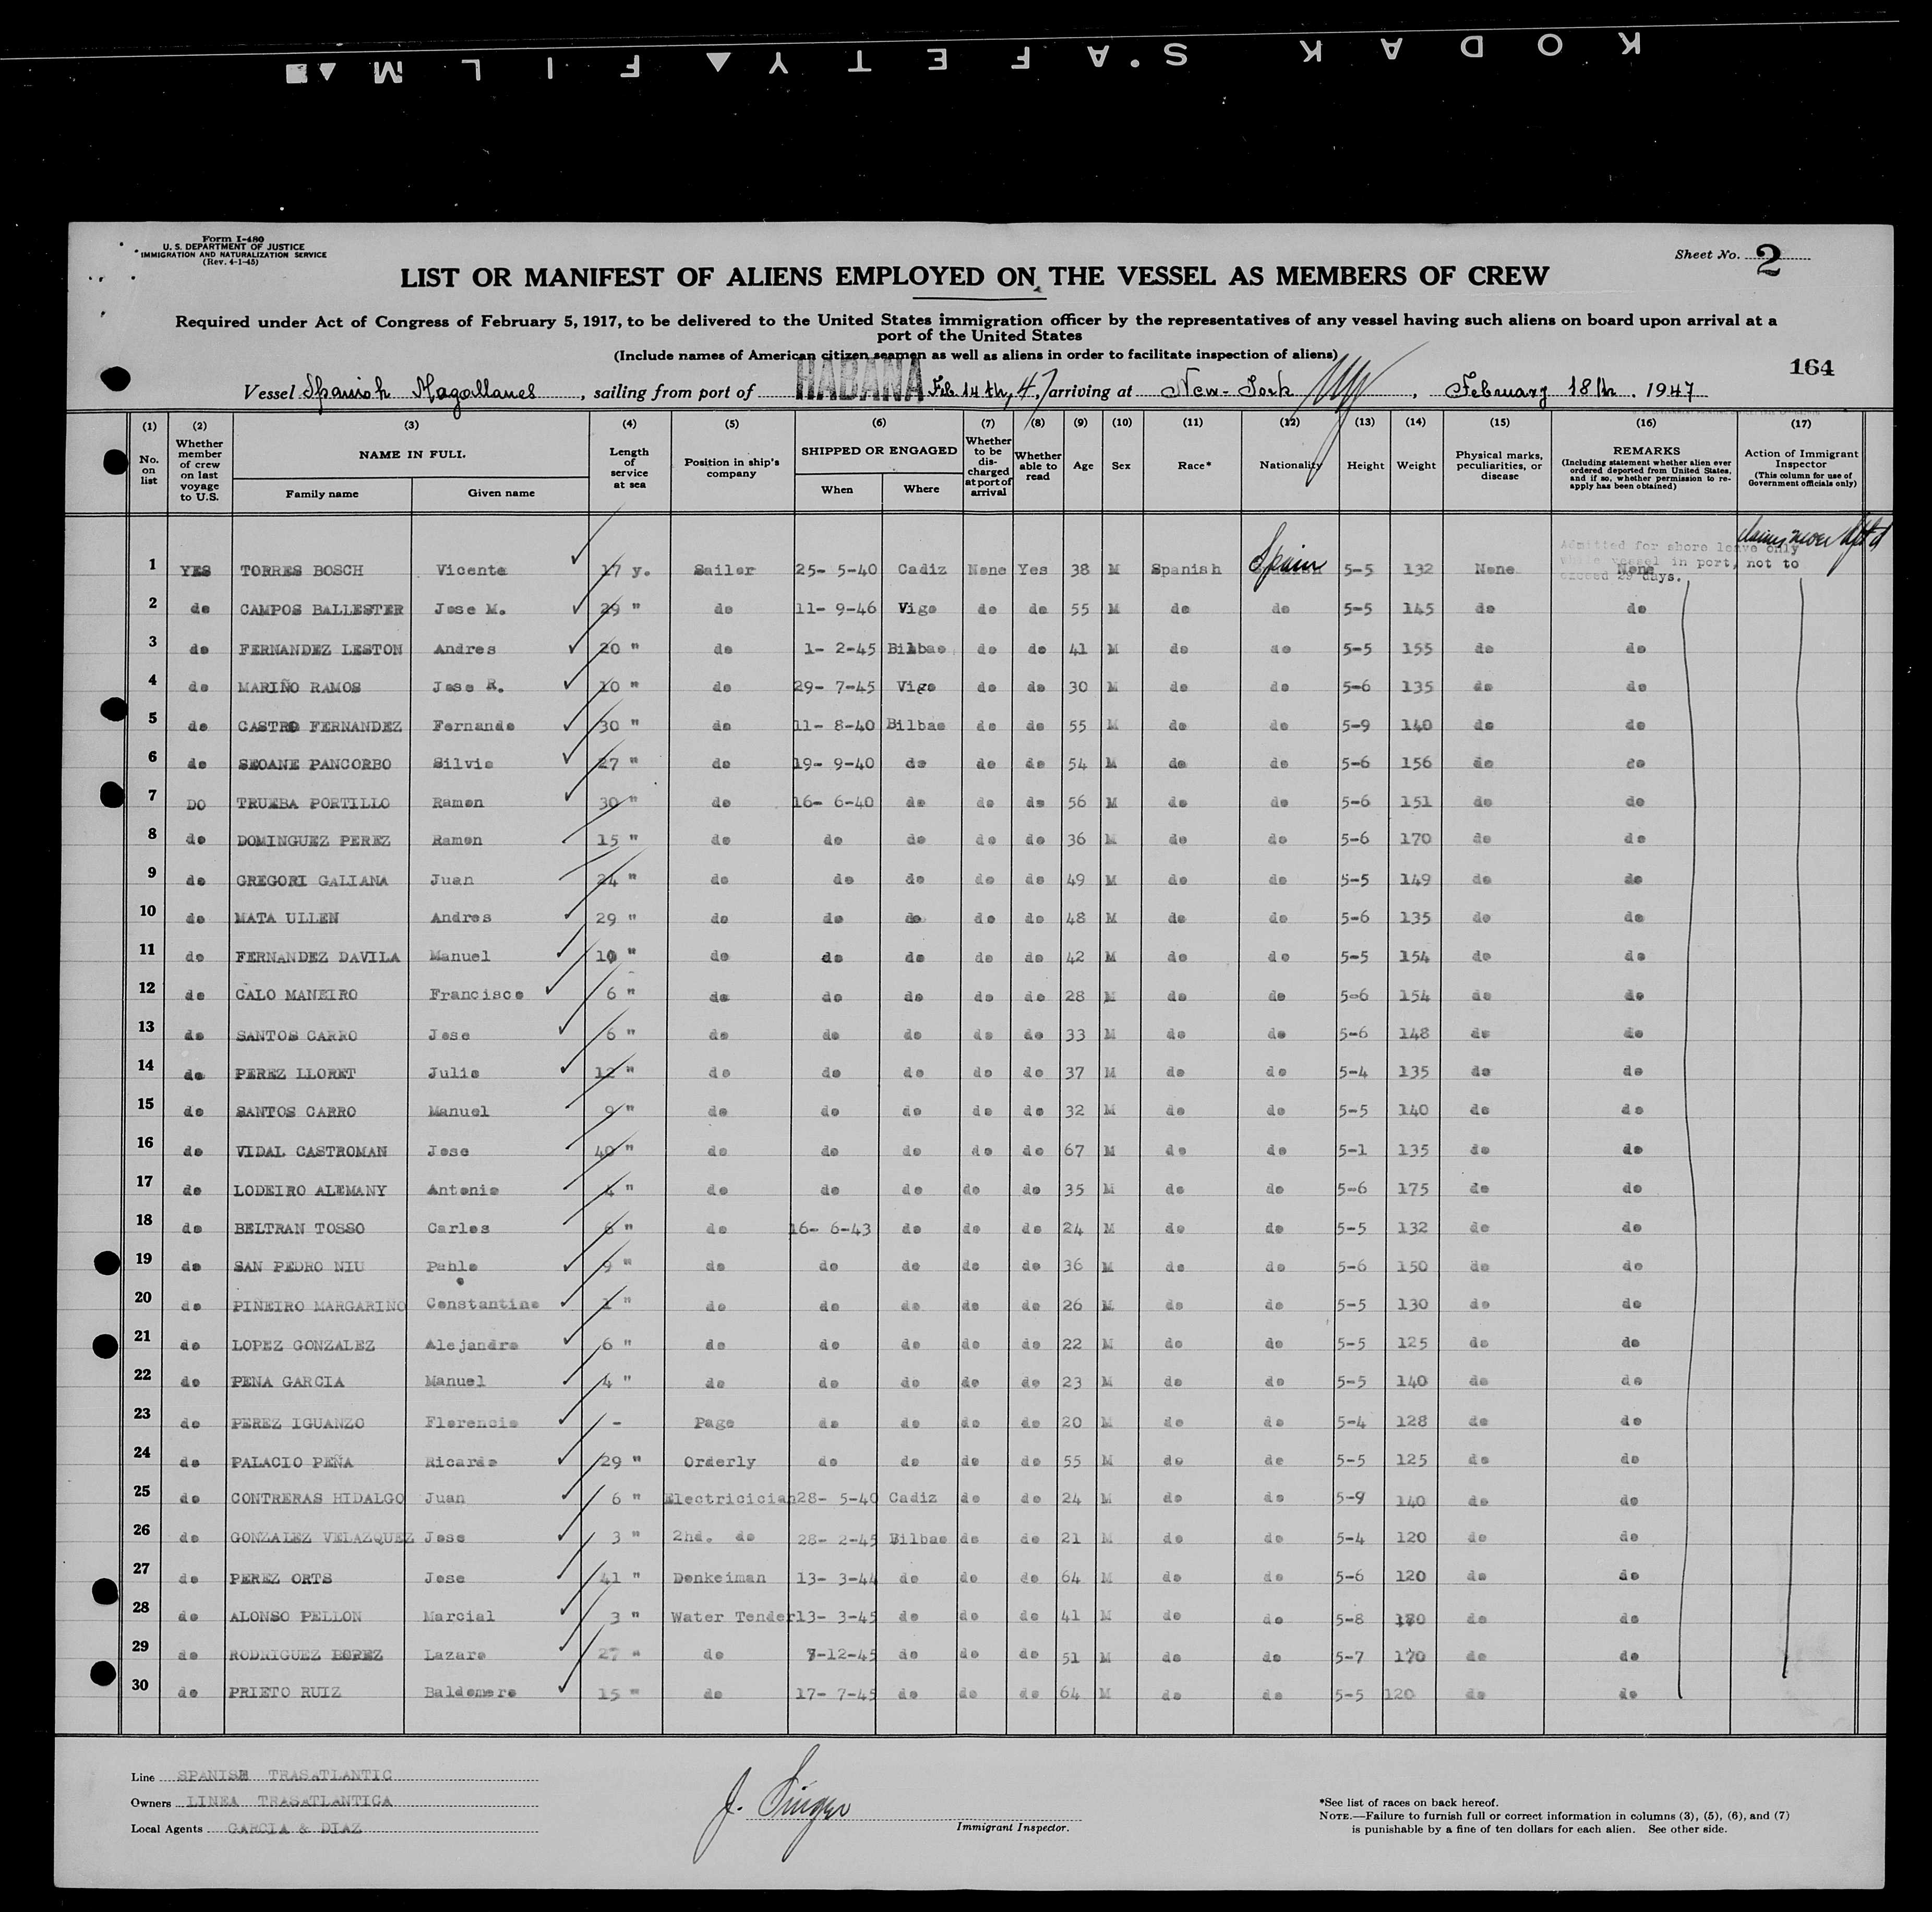 KODAK SAFETY FILM
Form I-480
U. S. DEPARTMENT OF JUSTICE
IMMIGRATION AND NATURALIZATION SERVICE
(Rev. 4-1-45)
Sheet No. 2
LIST OR MANIFEST OF ALIENS EMPLOYED ON THE VESSEL AS MEMBERS OF CREW
Required under Act of Congress of February 5, 1917, to be delivered to the United States immigration officer by the representatives of any vessel having such aliens on board upon arrival at a
port of the United States
(Include names of American citizen seamen as well as aliens in order to facilitate inspection of aliens)
164
Vessel Spanish Magallanes, sailing from port of HABANA Feb 14th, 47, arriving at New-York, February 18th. 1947
(1) (2) (3) (4) (5) (6) (7) (8) (9) (10) (11) (12) (13) (14) (15) (16) (17)
No. on list
Whether member of crew on last voyage to U.S.
NAME IN FULL
Family name Given name
Length of service at sea
Position in ship's company
SHIPPED OR ENGAGED
When Where
Whether to be discharged at port of arrival
Whether able to read
Age
Sex
Race*
Nationality
Height
Weight
Physical marks, peculiarities, or disease
REMARKS
(Including statement whether alien ever ordered deported from United States, and if so, whether permission to reapply has been obtained)
Action of Immigrant Inspector
(This column for use of Government officials only)
Admitted for shore leave only
while vessel in port, not to
exceed 29 days.
1 YES TORRES BOSCH Vicente 17 y. Sailor 25- 5-40 Cadiz None Yes 38 M Spanish Spain 5-5 132 None None
2 do CAMPOS BALLESTER Jose M. 29 " do 11- 9-46 Vigo do do 55 M do do 5-5 145 do do
3 do FERNANDEZ LESTON Andres 20 " do 1- 2-45 Bilbao do do 41 M do do 5-5 155 do do
4 do MARIÑO RAMOS Jose R. 10 " do 29- 7-45 Vigo do do 30 M do do 5-6 135 do do
5 do CASTRO FERNANDEZ Fernando 30 " do 11- 8-40 Bilbao do do 55 M do do 5-9 140 do do
6 do SEOANE PANCORBO Silvio 27 " do 19- 9-40 do do do 54 M do do 5-6 156 do do
7 DO TRUEBA PORTILLO Ramon 30 " do 16- 6-40 do do do 56 M do do 5-6 151 do do
8 do DOMINGUEZ PEREZ Ramon 15 " do do do do do 36 M do do 5-6 170 do do
9 do GREGORI GALIANA Juan 24 " do do do do do 49 M do do 5-5 149 do do
10 do MATA ULLEN Andres 29 " do do do do do 48 M do do 5-6 135 do do
11 do FERNANDEZ DAVILA Manuel 10 " do do do do do 42 M do do 5-5 154 do do
12 do CALO MANEIRO Francisco 6 " do do do do do 28 M do do 5-6 154 do do
13 do SANTOS CARRO Jose 6 " do do do do do 33 M do do 5-6 148 do do
14 do PEREZ LLORET Julio 12 " do do do do do 37 M do do 5-4 135 do do
15 do SANTOS CARRO Manuel 9 " do do do do do 32 M do do 5-5 140 do do
16 do VIDAL CASTROMAN Jose 40 " do do do do do 67 M do do 5-1 135 do do
17 do LODEIRO ALEMANY Antonio 4 " do do do do do 35 M do do 5-6 175 do do
18 do BELTRAN TOSSO Carlos 6 " do 16- 6-43 do do do 24 M do do 5-5 132 do do
19 do SAN PEDRO NIU Pablo 9 " do do do do do 36 M do do 5-6 150 do do
20 do PIÑEIRO MARGARINO Constantino 1 " do do do do do 26 M do do 5-5 130 do do
21 do LOPEZ GONZALEZ Alejandro 6 " do do do do do 22 M do do 5-5 125 do do
22 do PENA GARCIA Manuel 4 " do do do do do 23 M do do 5-5 140 do do
23 do PEREZ IGUANZO Florencio - Page do do do do 20 M do do 5-4 128 do do
24 do PALACIO PEÑA Ricardo 29 " Orderly do do do do 55 M do do 5-5 125 do do
25 do CONTRERAS HIDALGO Juan 6 " Electricician 28- 5-40 Cadiz do do 24 M do do 5-9 140 do do
26 do GONZALEZ VELAZQUEZ Jose 3 " 2nd. do 28- 2-45 Bilbao do do 21 M do do 5-4 120 do do
27 do PEREZ ORTS Jose 41 " Donkeiman 13- 3-44 do do do 64 M do do 5-6 120 do do
28 do ALONSO PELLON Marcial 3 " Water Tender 13- 3-45 do do do 41 M do do 5-8 do do
29 do RODRIGUEZ Lazaro 27 " do 7-12-45 do do do 51 M do do 5-7 170 do do
30 do PRIETO RUIZ Baldomero 15 " do 17- 7-45 do do do 64 M do do 5-5 120 do do
Line SPANISH TRASATLANTIC
Owners LINEA TRASATLANTICA
Local Agents GARCIA & DIAZ
J. Singer
Immigrant Inspector.
*See list of races on back hereof.
NOTE.—Failure to furnish full or correct information in columns (3), (5), (6), and (7)
is punishable by a fine of ten dollars for each alien. See other side.